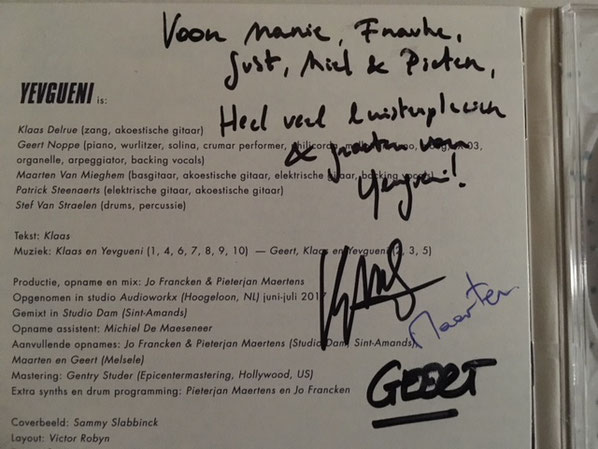 Voor Marie, Frauke,
Gust, Miel & Pieter,
Heel veel luisterplezier
& groeten van
Yevgueni!
YEVGUENI is:
Klaas Delrue (zang, akoestische gitaar)
Geert Noppe (piano, wurlitzer, solina, crumar performer, philicorda, 03,
organelle, arpeggiator, backing vocals)
Maarten Van Mieghem (basgitaar, akoestische gitaar, elektrische gitaar, backing vocals)
Patrick Steenaerts (elektrische gitaar, akoestische gitaar)
Stef Van Straelen (drums, percussie)
Tekst: Klaas
Muziek: Klaas en Yevgueni (1, 4, 6, 7, 8, 9, 10) — Geert, Klaas en Yevgueni (2, 3, 5)
Productie, opname en mix: Jo Francken & Pieterjan Maertens
Opgenomen in studio Audioworkx (Hoogeloon, NL) juni-juli 2017
Gemixt in Studio Dam (Sint-Amands)
Opname assistent: Michiel De Maeseneer
Aanvullende opnames: Jo Francken & Pieterjan Maertens (Studio Dam, Sint-Amands)
Maarten en Geert (Melsele)
Mastering: Gentry Studer (Epicentermastering, Hollywood, US)
Extra synths en drum programming: Pieterjan Maertens en Jo Francken
Coverbeeld: Sammy Slabbinck
Layout: Victor Robyn
Klaas
Maarten
GEERT